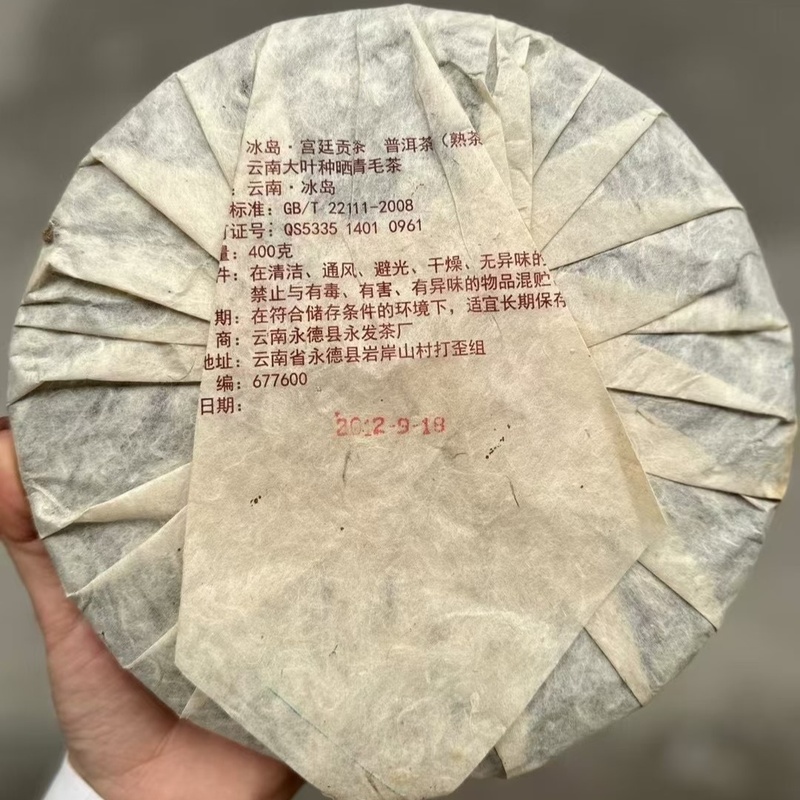 冰岛·宫廷贡茶 普洱茶（熟茶
云南大叶种晒青毛茶
：云南·冰岛
标准：GB/T 22111-2008
证号：QS5335 1401 0961
量：400克
件：在清洁、通风、避光、干燥、无异味的
禁止与有毒、有害、有异味的物品混贮
期：在符合储存条件的环境下，适宜长期保存
商：云南永德县永发茶厂
地址：云南省永德县岩岸山村打歪组
编：677600
日期：
2012-9-18